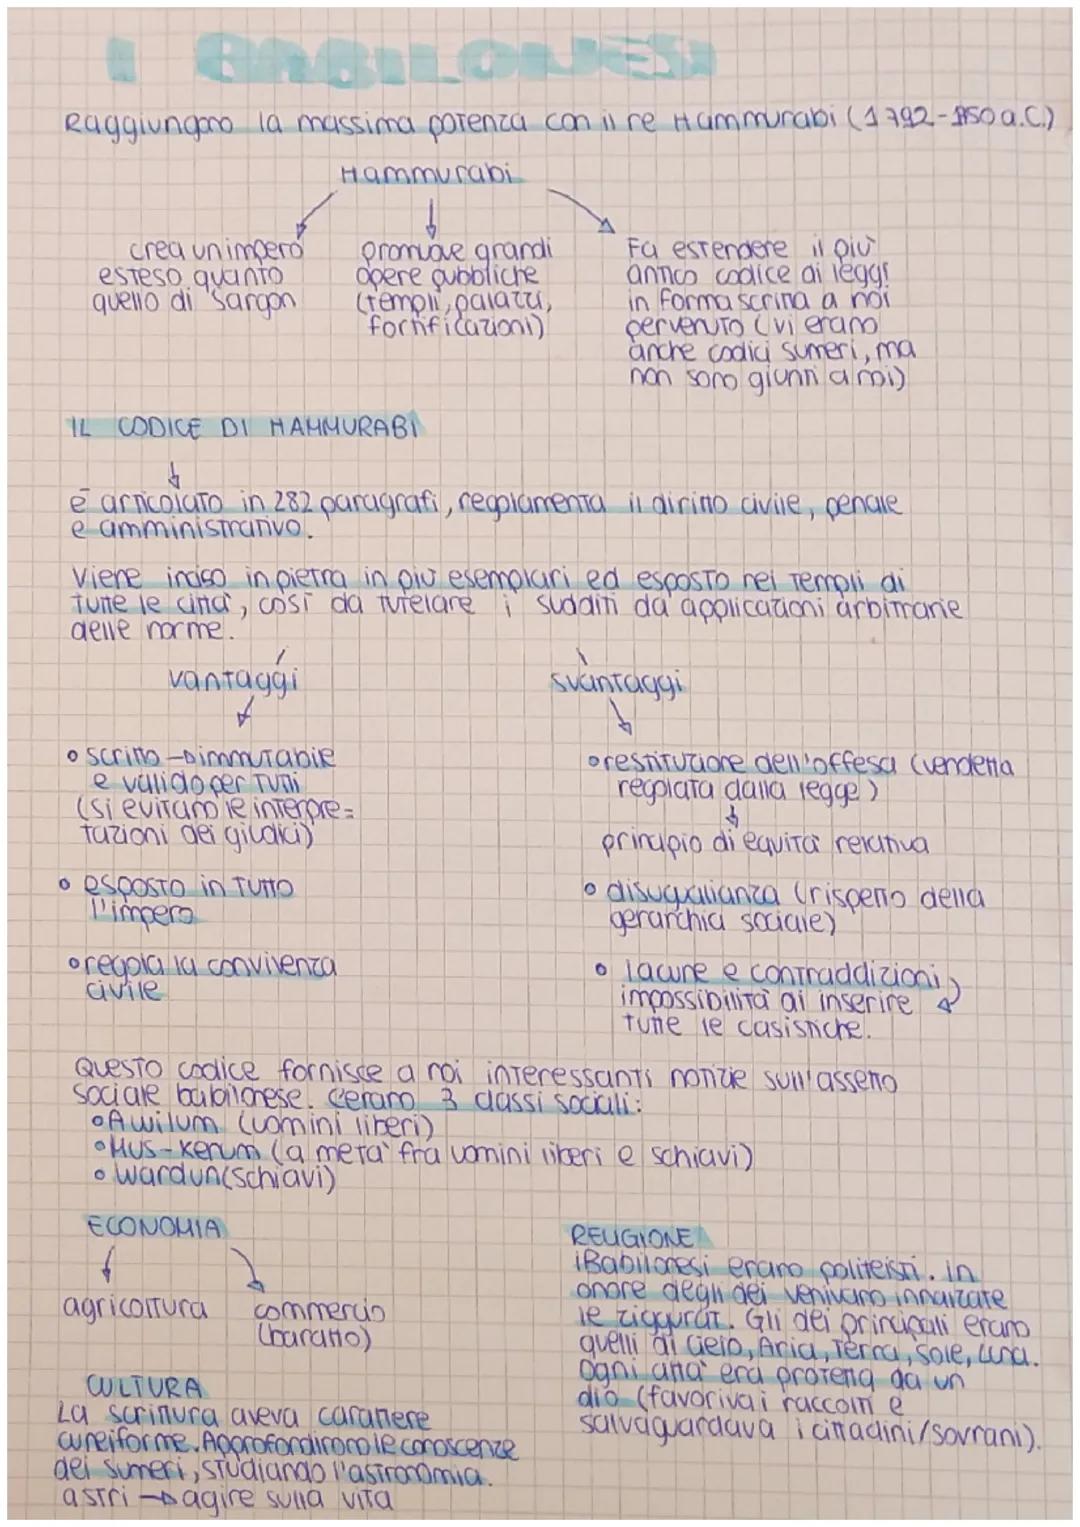 I BABILONESI
Raggiungono la massima potenza con il re Hammurabi (1792-1750 a.C.)
Hammurabi
crea un impero
esteso quanto
quello di Sargon
promuove grandi
opere pubbliche
(templi, palazzi,
fortificazioni)
Fa estendere il più
antico codice di leggi
in forma scritta a noi
pervenuto (vi erano
anche codici sumeri, ma
non sono giunti a noi)
IL CODICE DI HAMMURABI
è articolato in 282 paragrafi, regolamenta il diritto civile, penale
e amministrativo.
Viene inciso in pietra in più esemplari ed esposto nei templi di
tutte le città, così da tutelare i sudditi da applicazioni arbitrarie
delle norme.
vantaggi
svantaggi
• scritto → immutabile
e valido per tutti
(si evitano le interpre=
tazioni dei giudici)
• esposto in tutto
l'impero
• regola la convivenza
civile
• restituzione dell'offesa (vendetta
regolata dalla legge)
principio di equità relativa
• disuguaglianza (rispetto della
gerarchia sociale)
• lacune e contraddizioni
impossibilità di inserire
tutte le casistiche.
Questo codice fornisce a noi interessanti notizie sull'assetto
sociale babilonese. C'erano 3 classi sociali:
• Awilum (uomini liberi)
• Mus-Kenum (a metà fra uomini liberi e schiavi)
• Wardun (schiavi)
ECONOMIA
agricoltura
commercio
(baratto)
CULTURA
La scrittura aveva carattere
cuneiforme. Approfondirono le conoscenze
dei sumeri, studiando l'astronomia.
astri → agire sulla vita
RELIGIONE
i Babilonesi erano politeisti. In
onore degli dei venivano innalzate
le ziggurat. Gli dei principali erano
quelli di Cielo, Aria, Terra, Sole, Luna.
Ogni città era protetta da un
dio (favoriva i raccolti e
salvaguardava i cittadini/sovrani).